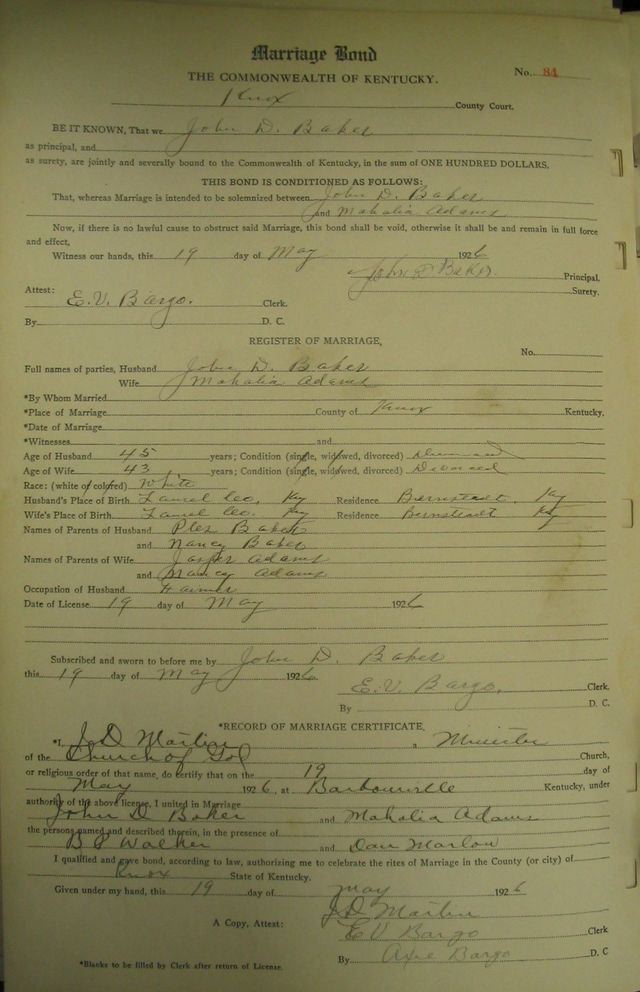 Marriage Bond
No. 84
THE COMMONWEALTH OF KENTUCKY.
Knox County Court.
BE IT KNOWN, That we John D. Baker
as principal, and
as surety, are jointly and severally bound to the Commonwealth of Kentucky, in the sum of ONE HUNDRED DOLLARS.
THIS BOND IS CONDITIONED AS FOLLOWS:
That, whereas Marriage is intended to be solemnized between John D. Baker
and Mahalia Adams
Now, if there is no lawful cause to obstruct said Marriage, this bond shall be void, otherwise it shall be and remain in full force
and effect,
Witness our hands, this 19 day of May 1926
John D Baker. Principal,
Surety.
Attest: E. V. Bargo. Clerk.
By D. C.
REGISTER OF MARRIAGE,
No.
Full names of parties, Husband John D. Baker
Wife Mahalia Adams
*By Whom Married
*Place of Marriage County of Knox Kentucky,
*Date of Marriage
*Witnesses and
Age of Husband 45 years; Condition (single, widowed, divorced)
Age of Wife 43 years; Condition (single, widowed, divorced) Divorced
Race: (white of colored) White
Husband's Place of Birth Laurel Co, Ky Residence Bernstadt, Ky
Wife's Place of Birth Laurel Co. Ky Residence Bernstadt Ky
Names of Parents of Husband Plez Baker
and Nancy Baker
Names of Parents of Wife Jasper Adams
and Nancy Adams
Occupation of Husband Farmer
Date of License 19 day of May 1926
Subscribed and sworn to before me by John D. Baker
this 19 day of May 1926
E. V. Bargo. Clerk.
By D. C.
*RECORD OF MARRIAGE CERTIFICATE,
*I J D Martin a Minister
of the Church of God Church,
or religious order of that name, do certify that on the 19 day of
May 1926, at Barbourville Kentucky, under
authority of the above license, I united in Marriage
John D Baker and Mahalia Adams
the persons named and described therein, in the presence of
B P Walker and Dan Marlow
I qualified and gave bond, according to law, authorizing me to celebrate the rites of Marriage in the County (or city) of
Knox State of Kentucky.
Given under my hand, this 19 day of May 1926
J D Martin
A Copy, Attest: E V Bargo Clerk
By Bargo D. C
*Blanks to be filled by Clerk after return of License.